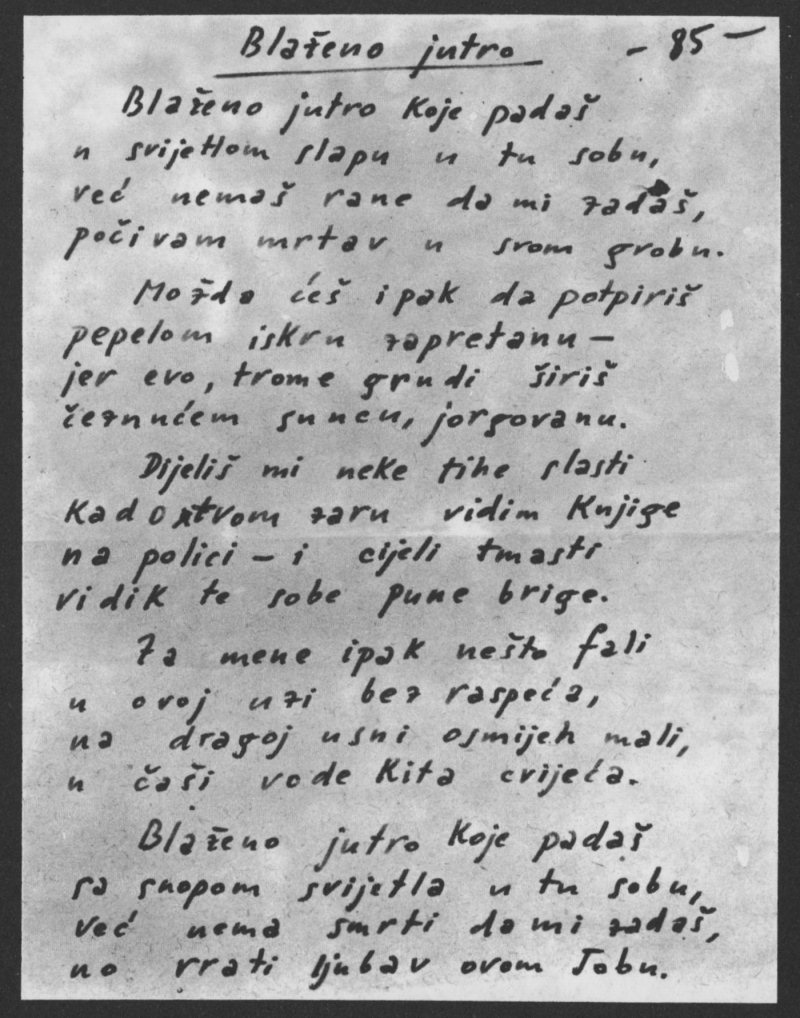 Blaženo jutro
- 85 -
Blaženo jutro koje padaš
u svijetlom slapu u tu sobu,
već nemaš rane da mi zadaš,
počivam mrtav u svom grobu.
Možda ćeš ipak da potpiriš
pepelom iskru zapretanu —
jer evo, trome grudi širiš
čeznućem suncu, jorgovanu.
Dijeliš mi neke tihe slasti
kad o tvom žaru vidim knjige
na polici — i cijeli tmasti
vidik te sobe pune brige.
Za mene ipak nešto fali
u ovoj uzi bez raspeća,
na dragoj usni osmijeh mali,
u čaši vode kita cvijeća.
Blaženo jutro koje padaš
sa snopom svijetla u tu sobu,
već nema smrti da mi zadaš,
no vrati ljubav ovom Jobu.